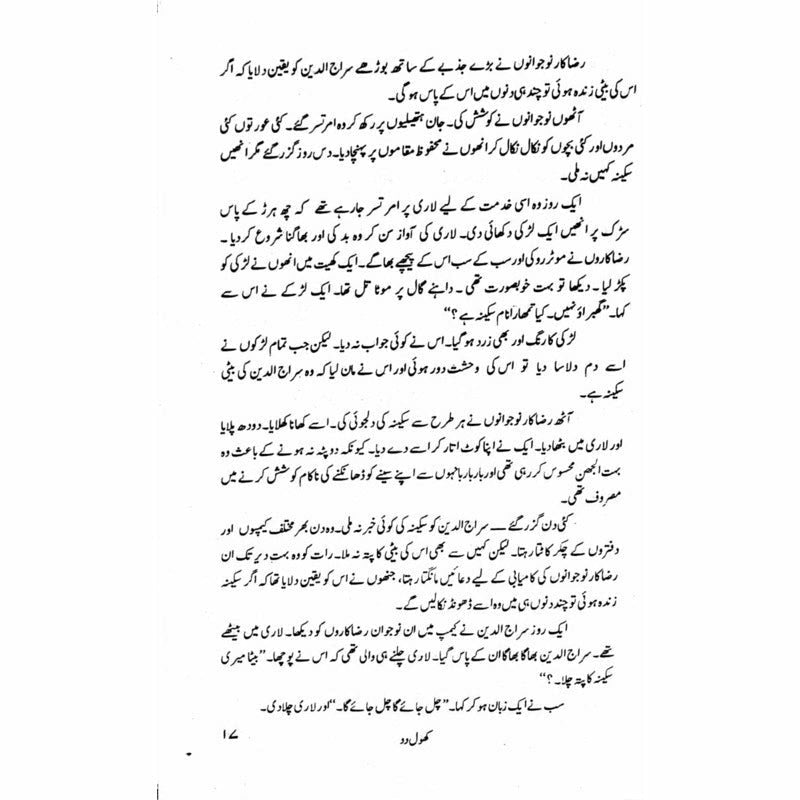 رضاکار نوجوانوں نے بڑے جذبے کے ساتھ بوڑھے سراج الدین کو یقین دلایا کہ اگر
اس کی بیٹی زندہ ہوئی تو چند ہی دنوں میں اس کے پاس ہوگی۔
آٹھوں نوجوانوں نے کوشش کی۔ جان ہتھیلیوں پر رکھ کر وہ امرتسر گئے۔ کئی عورتوں کئی
مردوں اور کئی بچوں کو نکال نکال کر انھوں نے محفوظ مقاموں پر پہنچا دیا۔ دس روز گزر گئے مگر انھیں
سکینہ کہیں نہ ملی۔
ایک روز وہ اسی خدمت کے لیے لاری پر امرتسر جا رہے تھے کہ چھ ہرڑ کے پاس
سڑک پر انھیں ایک لڑکی دکھائی دی۔ لاری کی آواز سن کر وہ بدکی اور بھاگنا شروع کر دیا۔
رضاکاروں نے موٹر روکی اور سب کے سب اس کے پیچھے بھاگے۔ ایک کھیت میں انھوں نے لڑکی کو
پکڑ لیا۔ دیکھا تو بہت خوبصورت تھی۔ داہنے گال پر موٹا تل تھا۔ ایک لڑکے نے اس سے
کہا۔ ”گھبراؤ نہیں۔ کیا تمھارا نام سکینہ ہے؟“
لڑکی کا رنگ اور بھی زرد ہوگیا۔ اس نے کوئی جواب نہ دیا۔ لیکن جب تمام لڑکوں نے
اسے دم دلاسا دیا تو اس کی وحشت دور ہوئی اور اس نے مان لیا کہ وہ سراج الدین کی بیٹی
سکینہ ہے۔
آٹھ رضاکار نوجوانوں نے ہر طرح سے سکینہ کی دلجوئی کی۔ اسے کھانا کھلایا۔ دودھ پلایا
اور لاری میں بٹھا دیا۔ ایک نے اپنا کوٹ اتار کر اسے دے دیا۔ کیونکہ دوپٹہ نہ ہونے کے باعث وہ
بہت الجھن محسوس کر رہی تھی اور بار بار بانہوں سے اپنے سینے کو ڈھانکنے کی ناکام کوشش کرنے میں
مصروف تھی۔
کئی دن گزر گئے — سراج الدین کو سکینہ کی کوئی خبر نہ ملی۔ وہ دن بھر مختلف کیمپوں اور
دفتروں کے چکر کاٹتا رہتا۔ لیکن کہیں سے بھی اس کی بیٹی کا پتہ نہ ملا۔ رات کو وہ بہت دیر تک ان
رضاکار نوجوانوں کی کامیابی کے لیے دعائیں مانگتا رہتا، جنھوں نے اس کو یقین دلایا تھا کہ اگر سکینہ
زندہ ہوئی تو چند دنوں ہی میں وہ اسے ڈھونڈ نکالیں گے۔
ایک روز سراج الدین نے کیمپ میں ان نوجوان رضاکاروں کو دیکھا۔ لاری میں بیٹھے
تھے۔ سراج الدین بھاگا بھاگا ان کے پاس گیا۔ لاری چلنے ہی والی تھی کہ اس نے پوچھا۔ ”بیٹا میری
سکینہ کا پتہ چلا۔؟“
سب نے ایک زبان ہو کر کہا۔ ”چل جائے گا چل جائے گا۔“ اور لاری چلا دی۔
کھول دو
۱۷